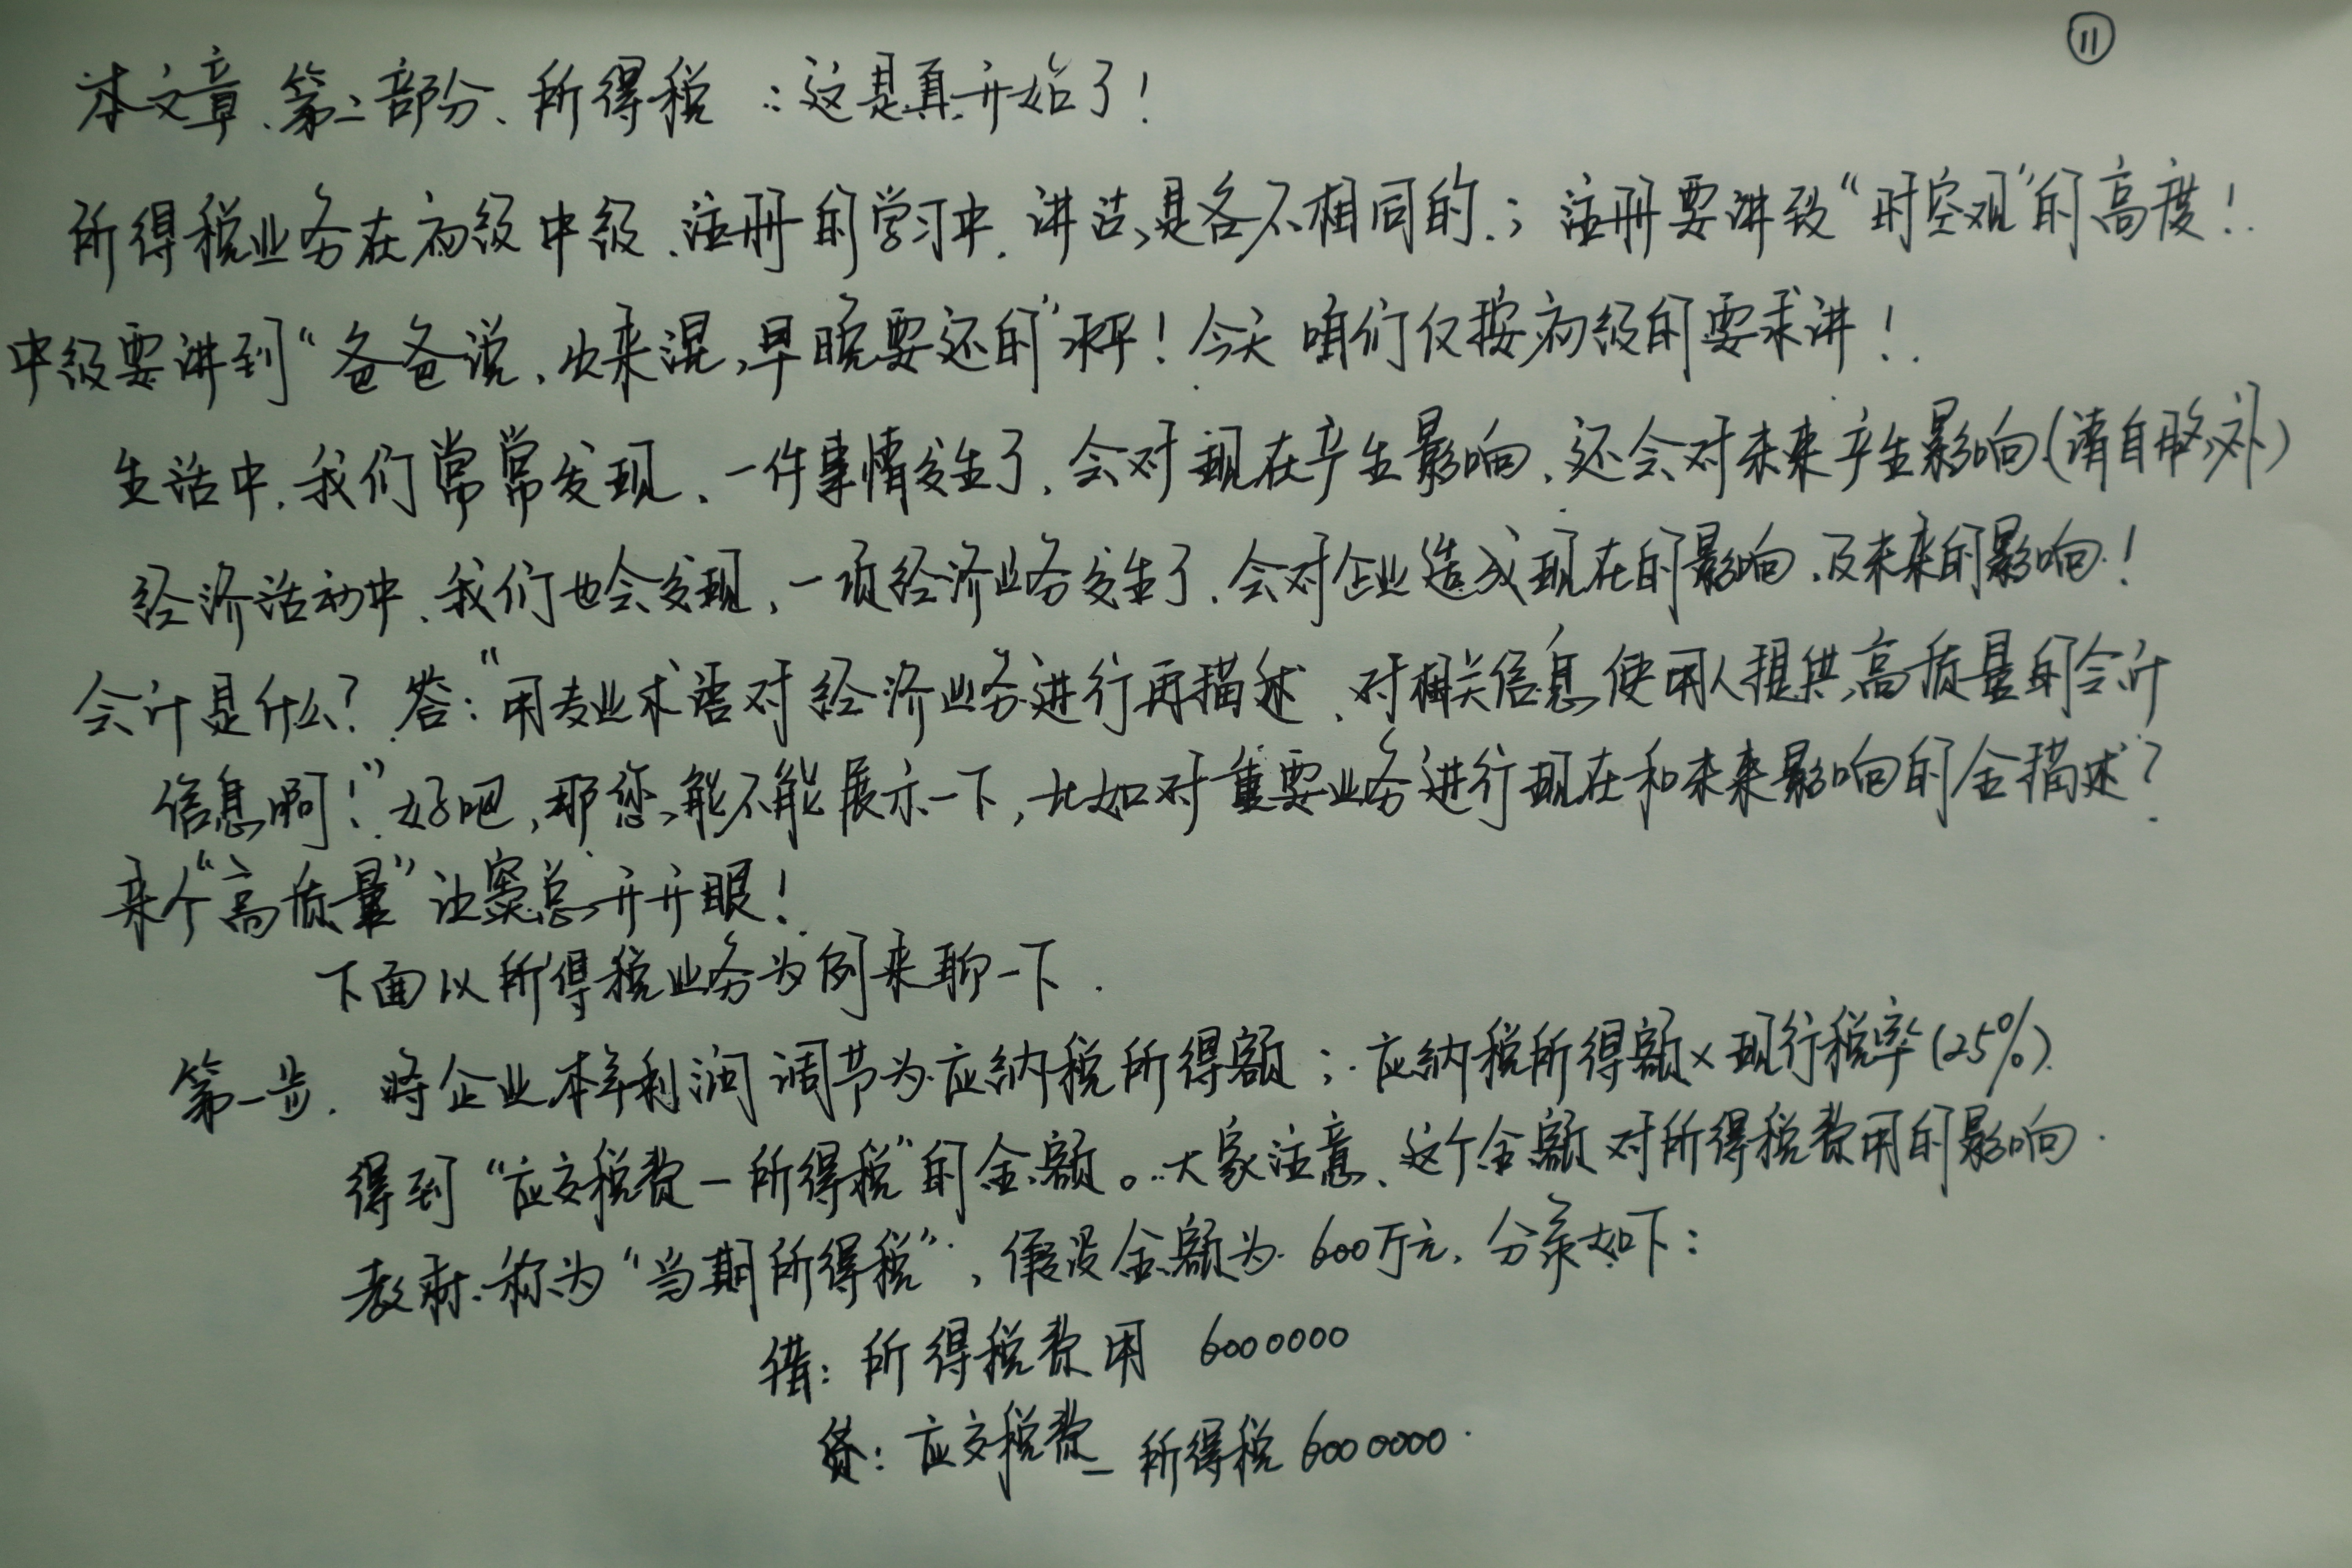 ⑪
本文章、第二部分、所得税：这是真开始了！
所得税业务在初级中级、注册的学习中，讲法是各不相同的；注册要讲到“时空观”的高度！
中级要讲到“爸爸说，出来混，早晚要还的”水平！今天咱们仅按初级的要求讲！
生活中，我们常常发现，一件事情发生了，会对现在产生影响，还会对未来产生影响（请自行脑补）
经济活动中，我们也会发现，一项经济业务发生了，会对企业造成现在的影响，及未来的影响！
会计是什么？答：“用专业术语对经济业务进行再描述，对相关信息使用人提供高质量的会计
信息啊！”好吧，那您能不能展示一下，比如对重要业务进行现在和未来影响的全描述？
来个“高质量”让窦总开开眼！
下面以所得税业务为例来聊一下．
第一步．将企业本年利润调节为应纳税所得额；应纳税所得额×现行税率（25%）
得到“应交税费－所得税”的金额。大家注意、这个金额对所得税费用的影响
教材称为“当期所得税”，假设金额为600万元，分录如下：
借：所得税费用 6000000
贷：应交税费－所得税 6000000